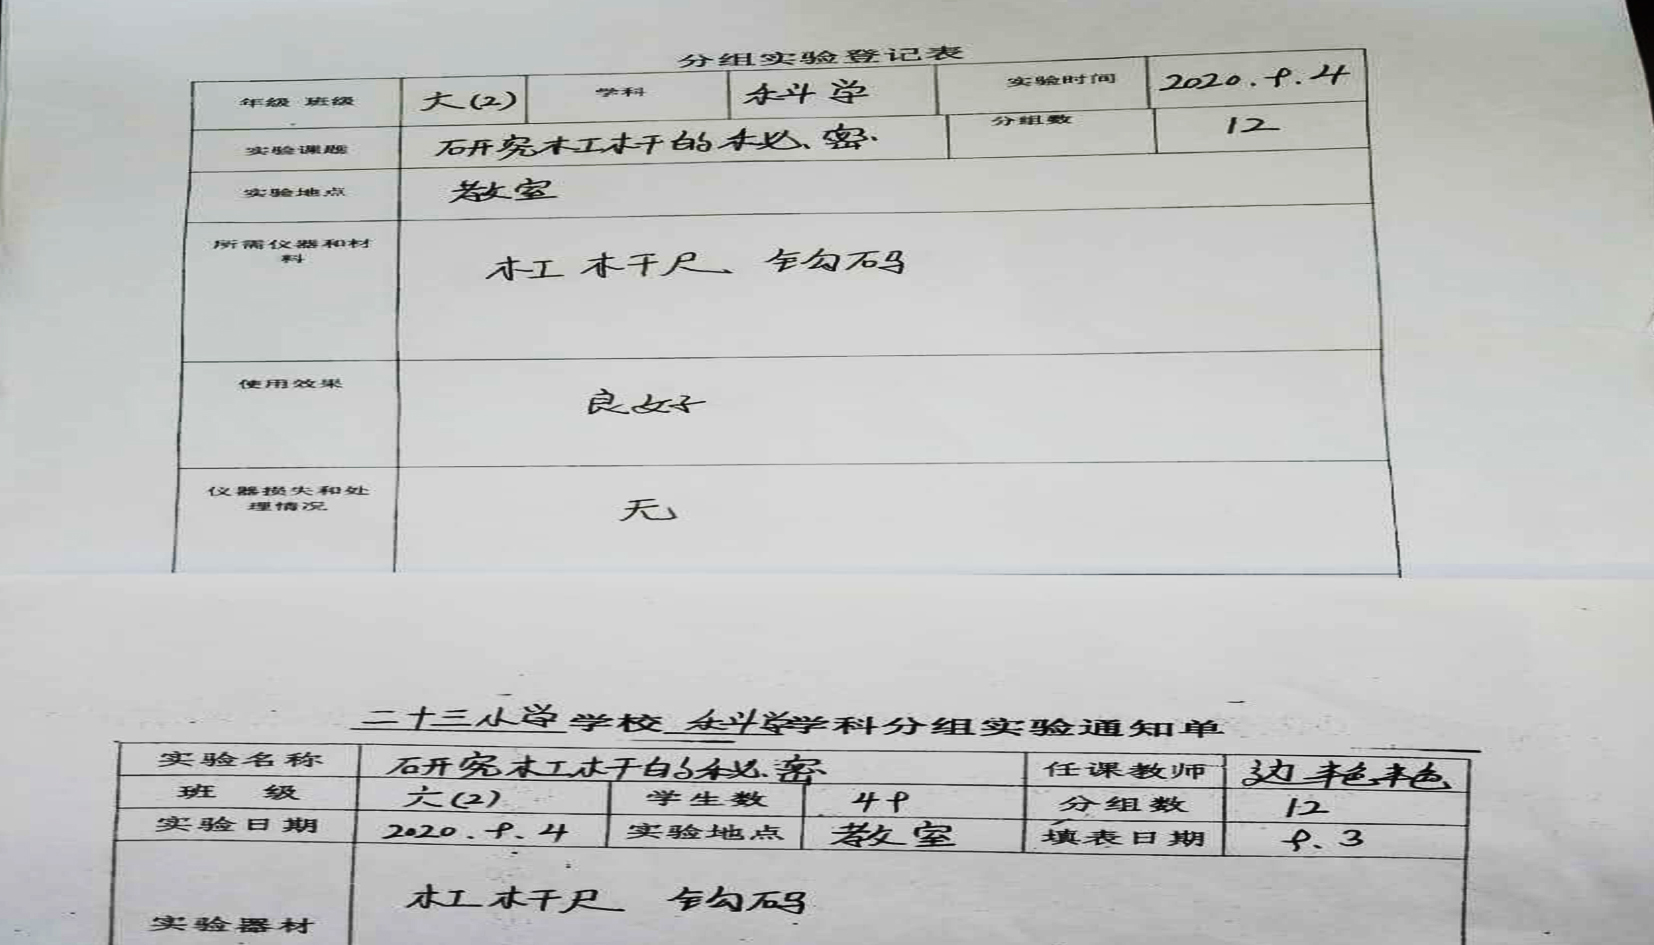 分组实验登记表
年级 班级 六(2) 学科 科学 实验时间 2020.9.4
实验课题 研究杠杆的秘密 分组数 12
实验地点 教室
所需仪器和材
料
杠杆尺、钩码
使用效果 良好
仪器损失和处
理情况
无
二十三小学学校 科学学科分组实验通知单
实验名称 研究杠杆的秘密 任课教师 边艳艳
班 级 六(2) 学生数 49 分组数 12
实验日期 2020.9.4 实验地点 教室 填表日期 9.3
实验器材 杠杆尺 钩码